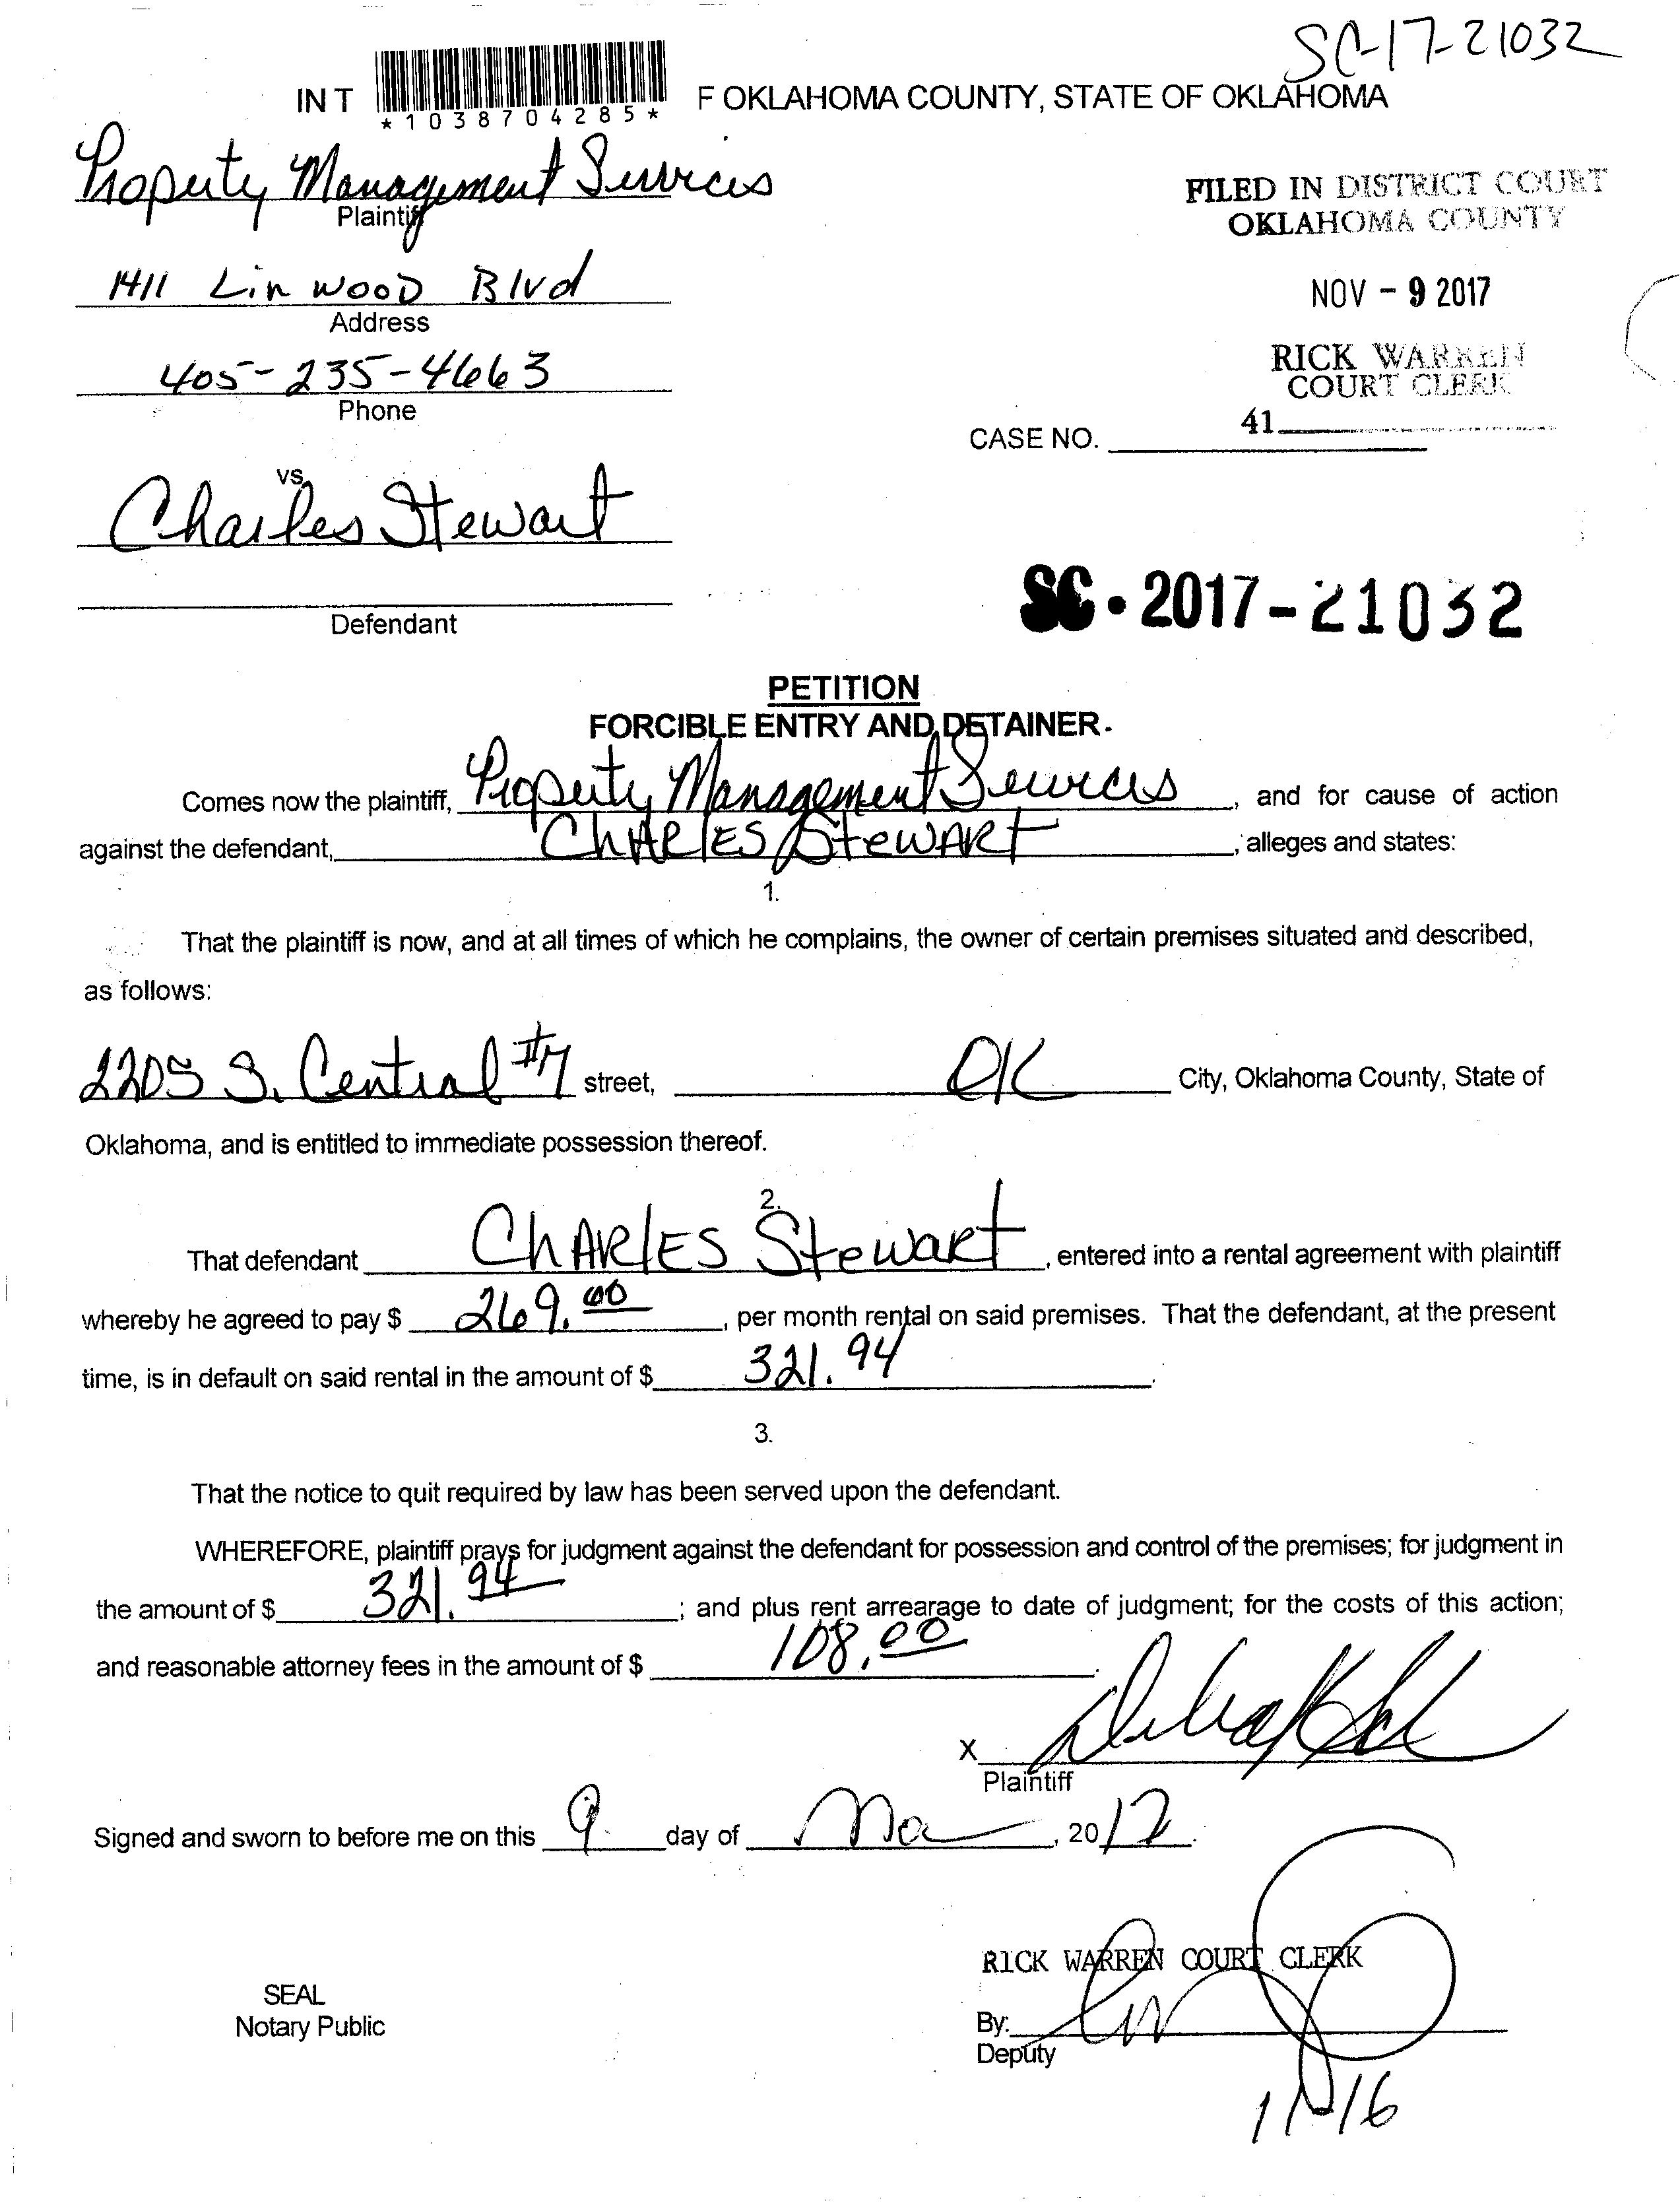 SC-17-21032
IN T F OKLAHOMA COUNTY, STATE OF OKLAHOMA
*1038704285*
Property Management Services
Plaintiff
FILED IN DISTRICT COURT
OKLAHOMA COUNTY
1411 Linwood Blvd
Address
NOV - 9 2017
405-235-4663
Phone
RICK WARREN
COURT CLERK
41
CASE NO.
vs.
Charles Stewart
Defendant
SC-2017-21032
PETITION
FORCIBLE ENTRY AND DETAINER.
Comes now the plaintiff, Property Management Services, and for cause of action
against the defendant, ChARlES StewARt, alleges and states:
1.
That the plaintiff is now, and at all times of which he complains, the owner of certain premises situated and described,
as follows:
2205 S. Central #7 street, OK City, Oklahoma County, State of
Oklahoma, and is entitled to immediate possession thereof.
2.
That defendant ChARlES Stewart, entered into a rental agreement with plaintiff
whereby he agreed to pay $ 269.00, per month rental on said premises. That the defendant, at the present
time, is in default on said rental in the amount of $ 321.94.
3.
That the notice to quit required by law has been served upon the defendant.
WHEREFORE, plaintiff prays for judgment against the defendant for possession and control of the premises; for judgment in
the amount of $ 321.94; and plus rent arrearage to date of judgment; for the costs of this action;
and reasonable attorney fees in the amount of $ 108.00.
X
Plaintiff
Signed and sworn to before me on this 9 day of Nov, 2017.
RICK WARREN COURT CLERK
SEAL
Notary Public
By:
Deputy
11-16